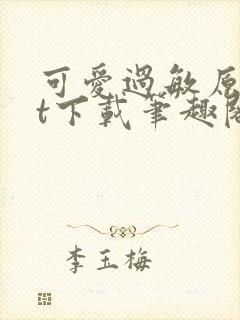 可愛過敏原
t下載筆趣閣
李玉梅